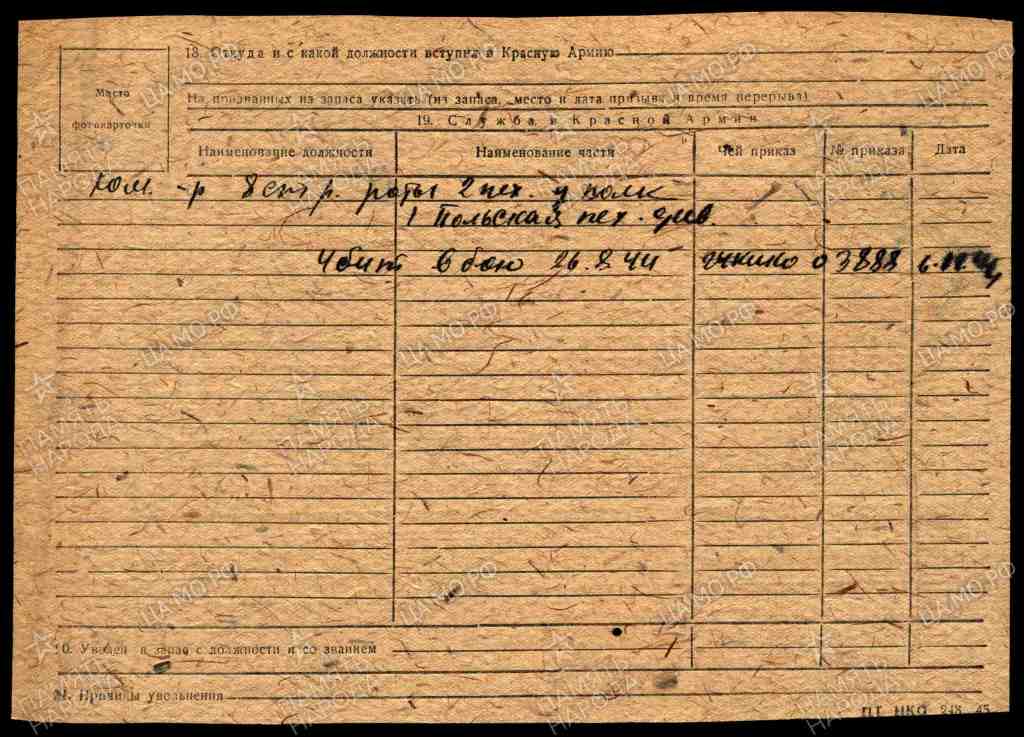 18. Откуда и с какой должности вступил в Красную Армию
Место
фотокарточки
На призванных из запаса указать (из запаса, место и дата призыва и время перерыва)
19. Служба в Красной Армии
Наименование должности Наименование части Чей приказ № приказа Дата
Ком-р 8 стр. роты 2 пех. полк
1 Польская пех. див.
Убит в бою 26.8.44 03888
20. Уволен в запас с должности и со званием
21. Причины увольнения
ЦАМО.РФ
ПАМЯТЬ
НАРОДА